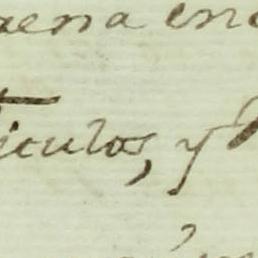 ena en
iculos, y